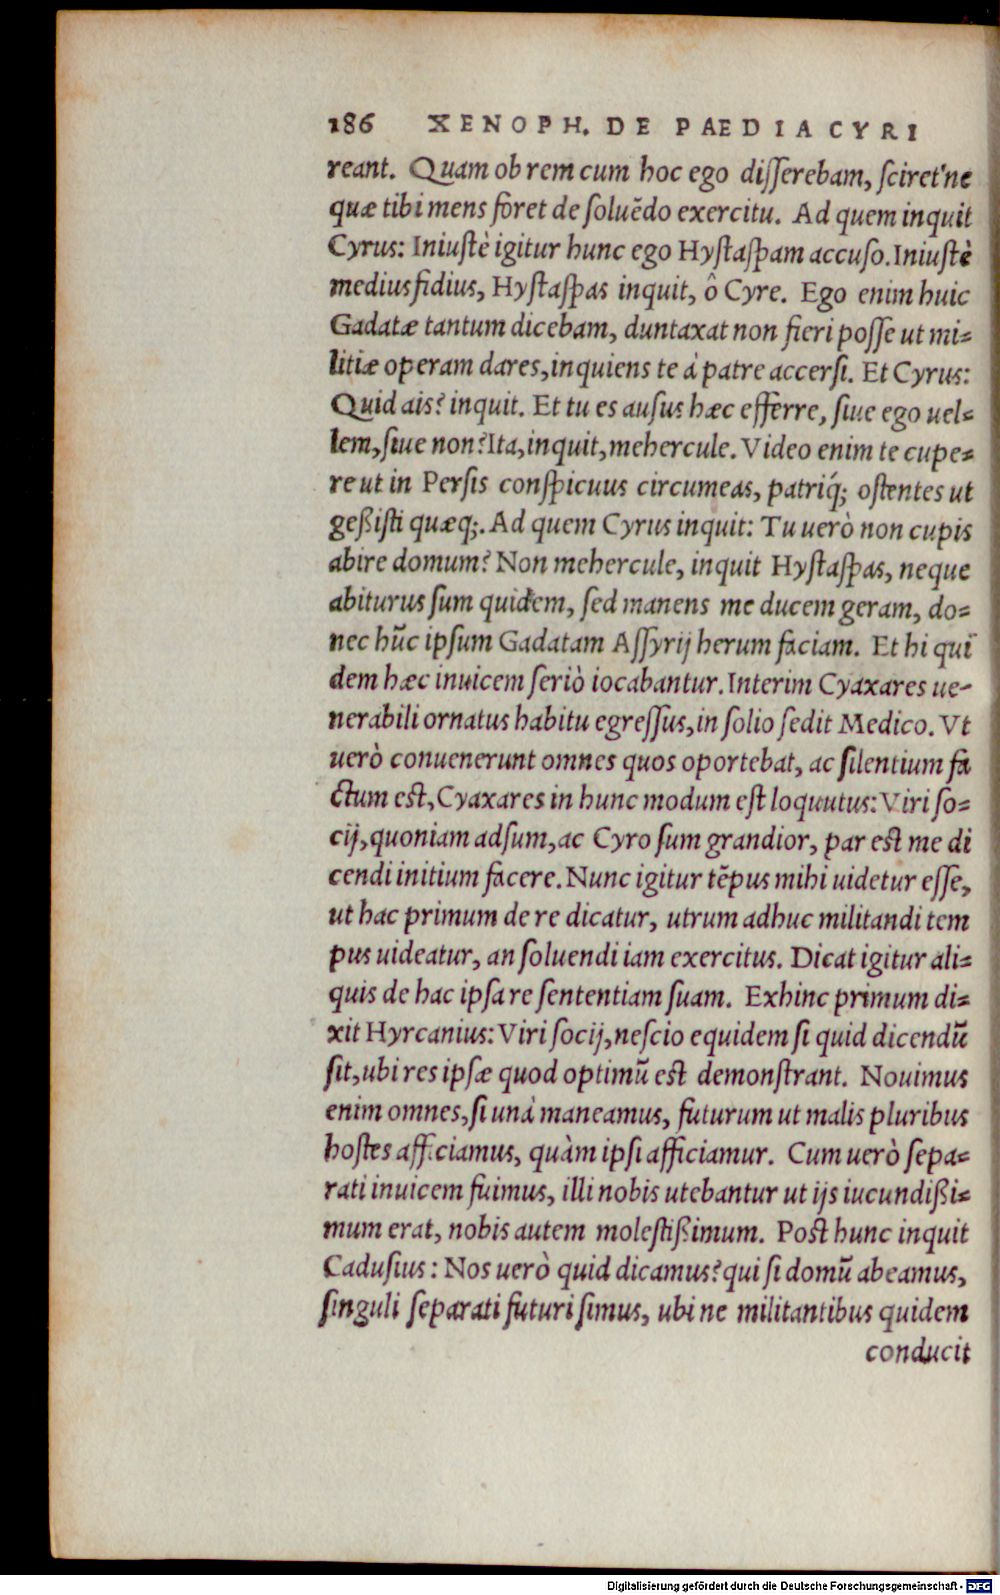 186 XENOPH. DE PAEDIA CYRI
reant. Quam ob rem cum hoc ego disserebam, sciret'ne
quæ tibi mens foret de soluēdo exercitu. Ad quem inquit
Cyrus: Iniustè igitur hunc ego Hystaspam accuso. Iniustè
mediusfidius, Hystaspas inquit, ô Cyre. Ego enim huic
Gadatæ tantum dicebam, duntaxat non fieri posse ut mi-
litiæ operam dares, inquiens te à patre accersi. Et Cyrus:
Quid ais? inquit. Et tu es ausus hæc efferre, siue ego uel-
lem, siue non? Ita, inquit, mehercule. Video enim te cupe-
re ut in Persis conspicuus circumeas, patriq́; ostentes ut
geßisti quæq;. Ad quem Cyrus inquit: Tu uerò non cupis
abire domum? Non mehercule, inquit Hystaspas, neque
abiturus sum quidem, sed manens me ducem geram, do-
nec hūc ipsum Gadatam Assyrij herum faciam. Et hi quī
dem hæc inuicem seriò iocabantur. Interim Cyaxares ue-
nerabili ornatus habitu egressus, in solio sedit Medico. Vt
uerò conuenerunt omnes quos oportebat, ac silentium fa
ctum est, Cyaxares in hunc modum est loquutus: Viri so-
cij, quoniam adsum, ac Cyro sum grandior, par est me di
cendi initium facere. Nunc igitur tēpus mihi uidetur esse,
ut hac primum de re dicatur, utrum adhuc militandi tem
pus uideatur, an soluendi iam exercitus. Dicat igitur ali-
quis de hac ipsa re sententiam suam. Exhinc primum di-
xit Hyrcanius: Viri socij, nescio equidem si quid dicendū
sit, ubi res ipsæ quod optimū est demonstrant. Nouimus
enim omnes, si unà maneamus, futurum ut malis pluribus
hostes afficiamus, quàm ipsi afficiamur. Cum uerò sepa-
rati inuicem fuimus, illi nobis utebantur ut ijs iucundißi-
mum erat, nobis autem molestißimum. Post hunc inquit
Cadusius: Nos uerò quid dicamus? qui si domū abeamus,
singuli separati futuri simus, ubi ne militantibus quidem
conducit
Digitalisierung gefördert durch die Deutsche Forschungsgemeinschaft - DFG